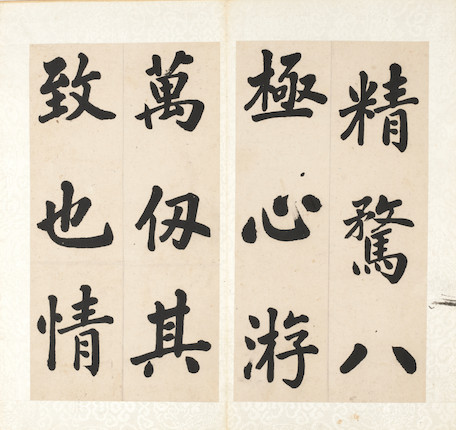 精騖八
極心游
萬仞其
致也情